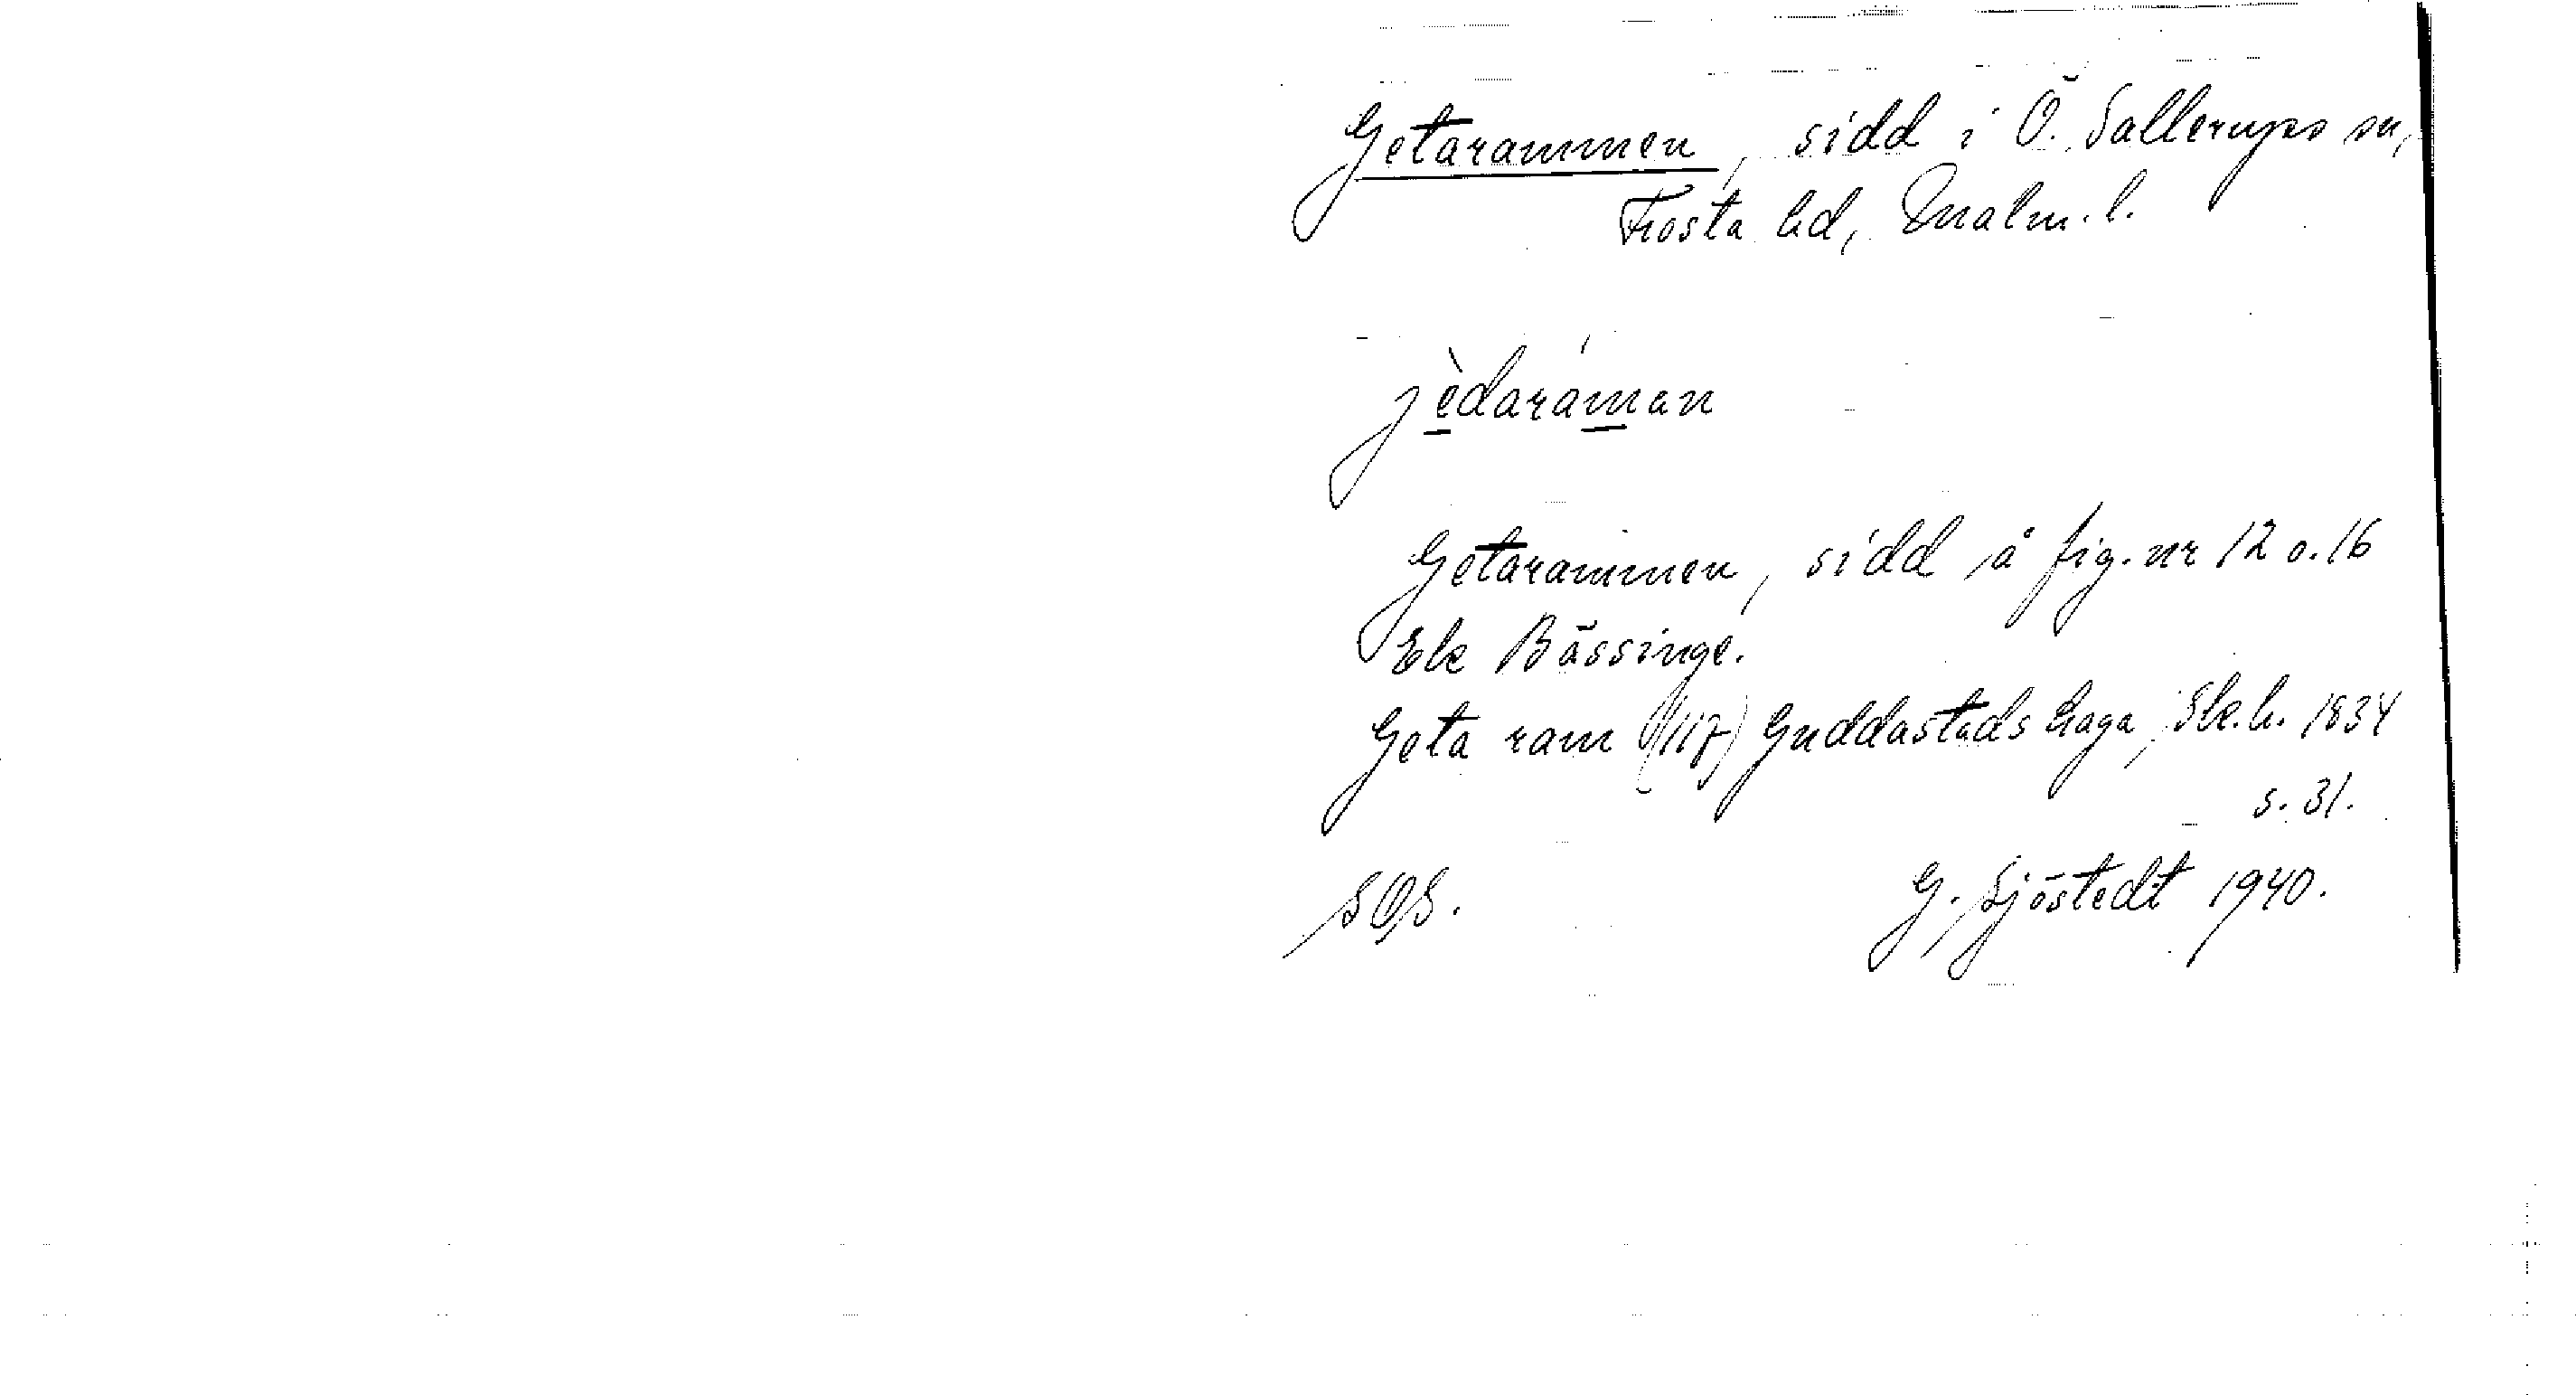 Getarammen, sidd i Ö. Sallerups sn,
Frosta hd, Malm. l.
jèdaráman
Getarammen, sidd å fig. nr 12 o. 16
Ek Bässinge.
Geta ram (117) Guddastads haga, Sk.h. 1834
s. 31.
SOS.
G. Sjöstedt 1940.